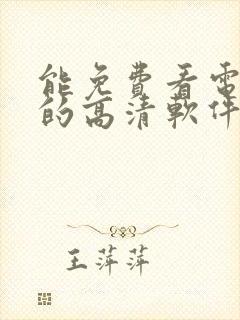 能免費看電
的高清軟件
王萍萍